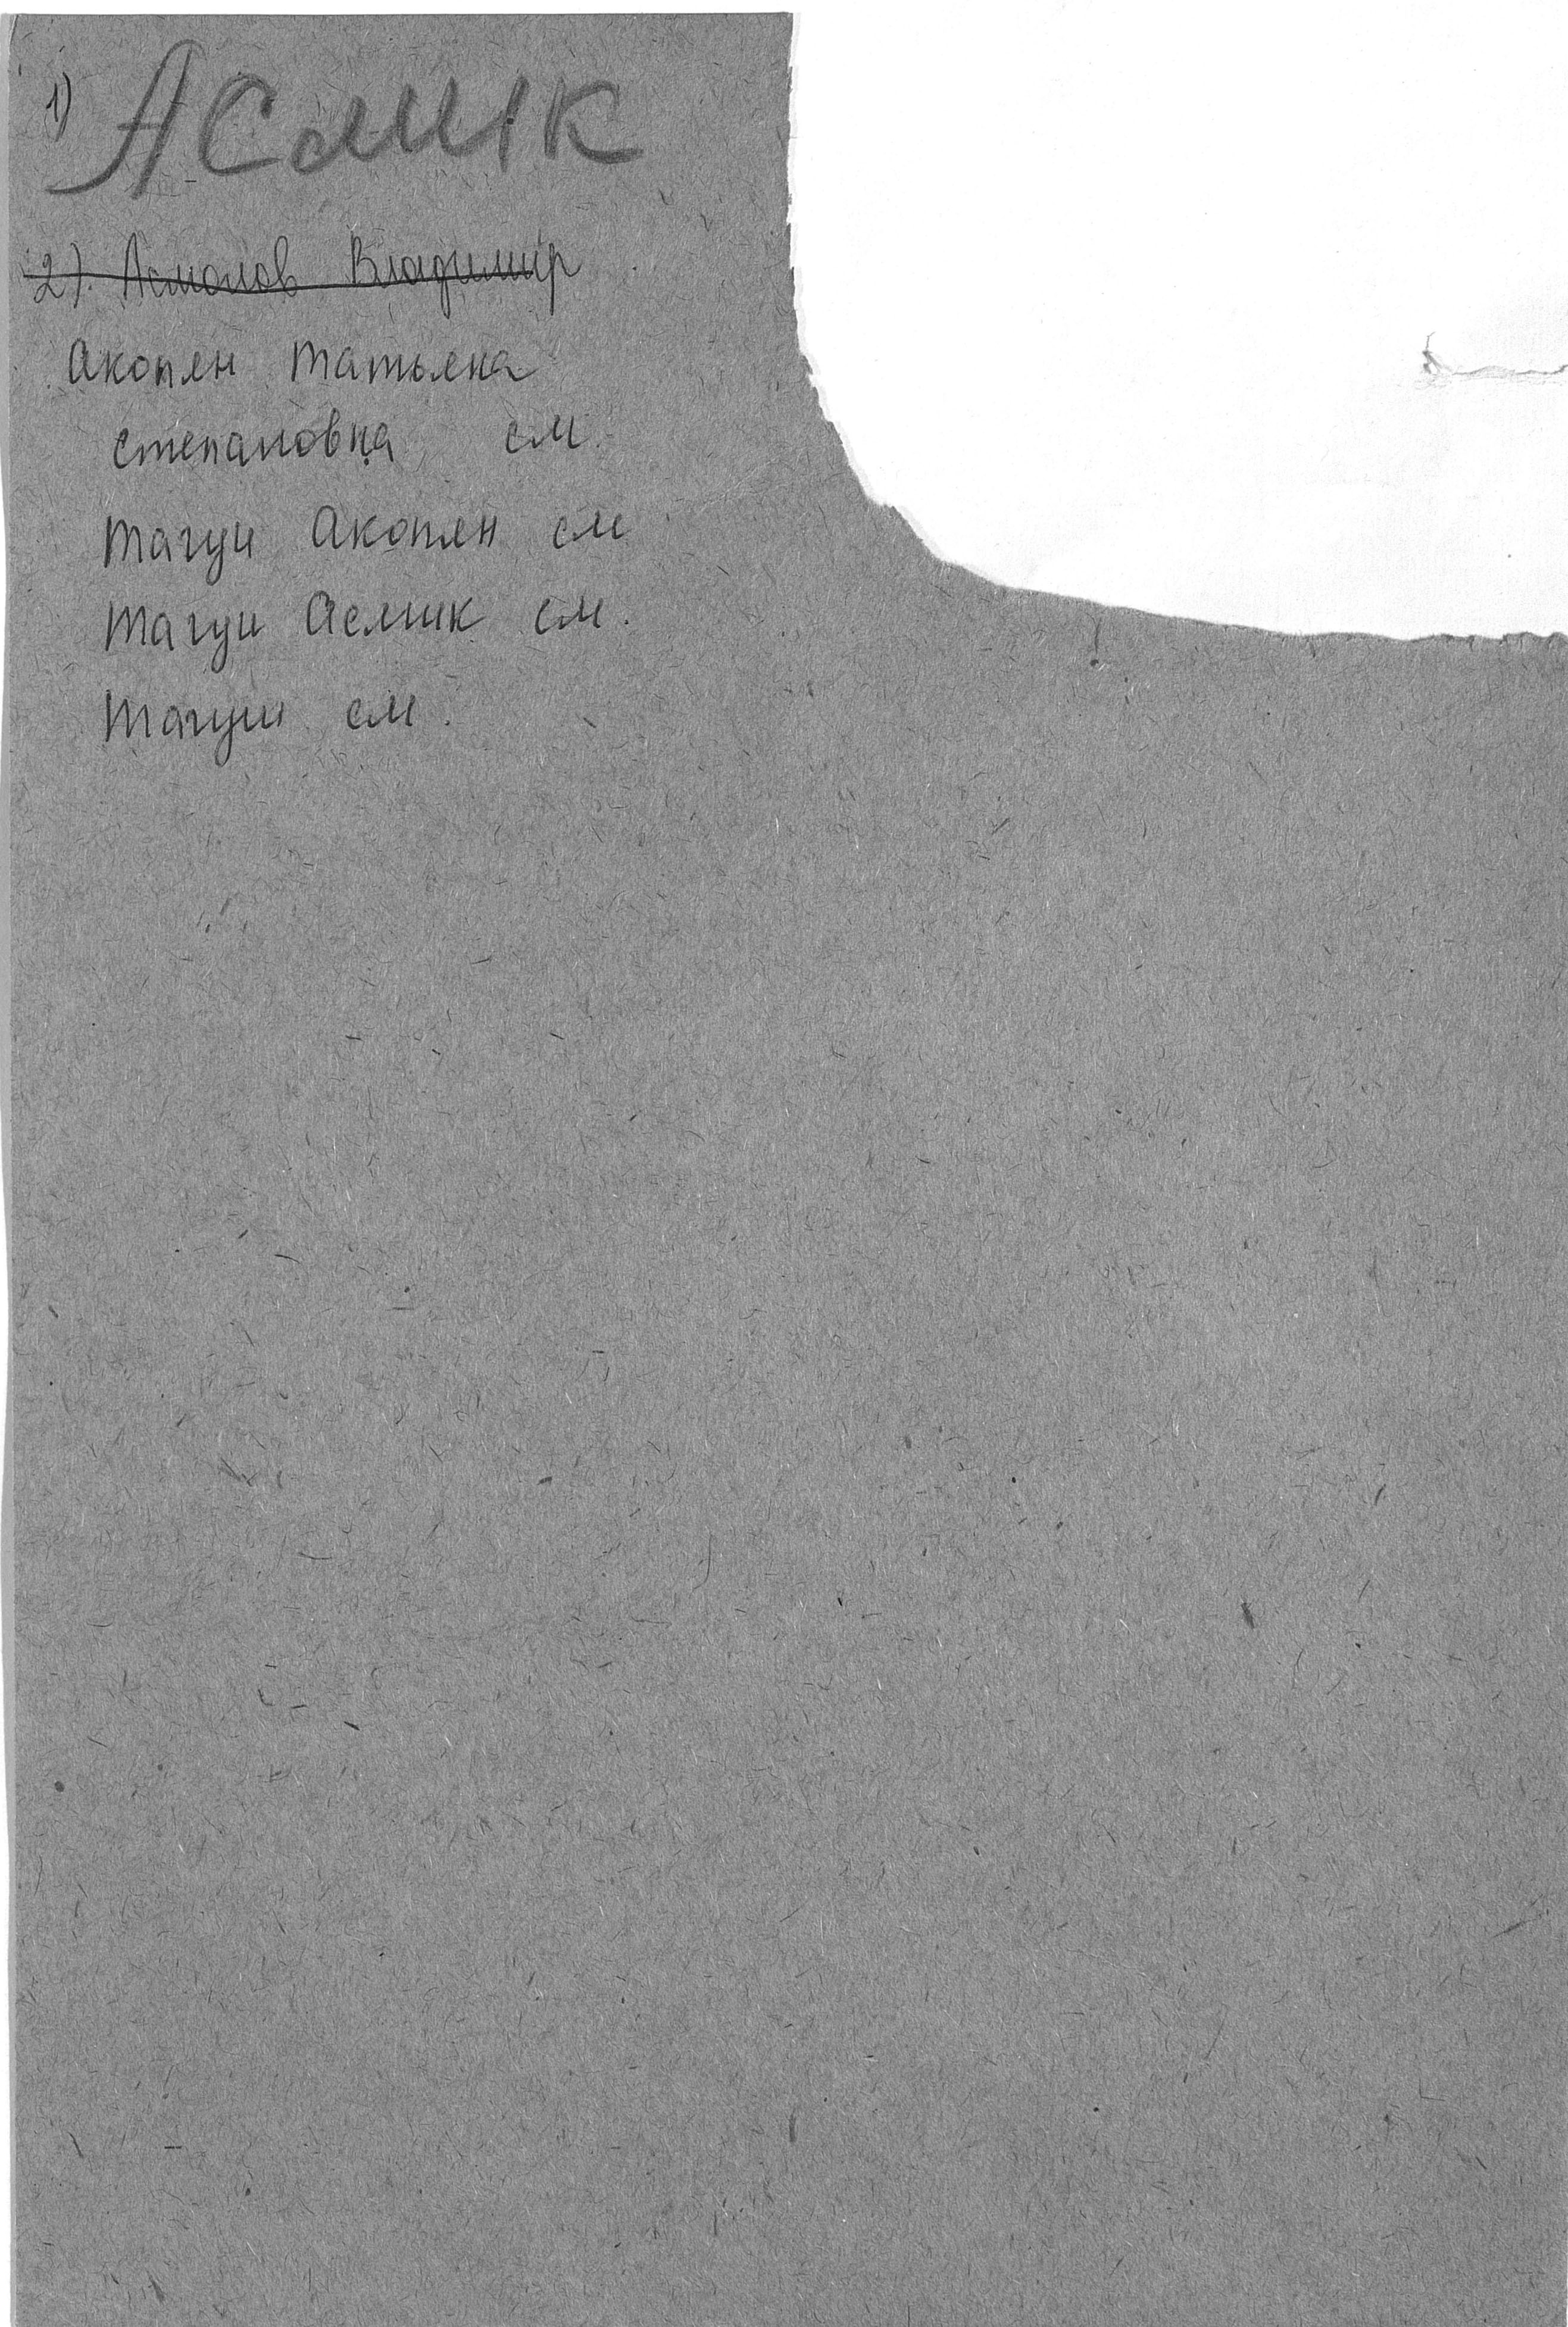 1) Асмік
2). Асмолов Владимир
Акопян Татьяна
Степановна см.
Тагуи Акопян см
Тагуи Асмик см.
Тагуи см.